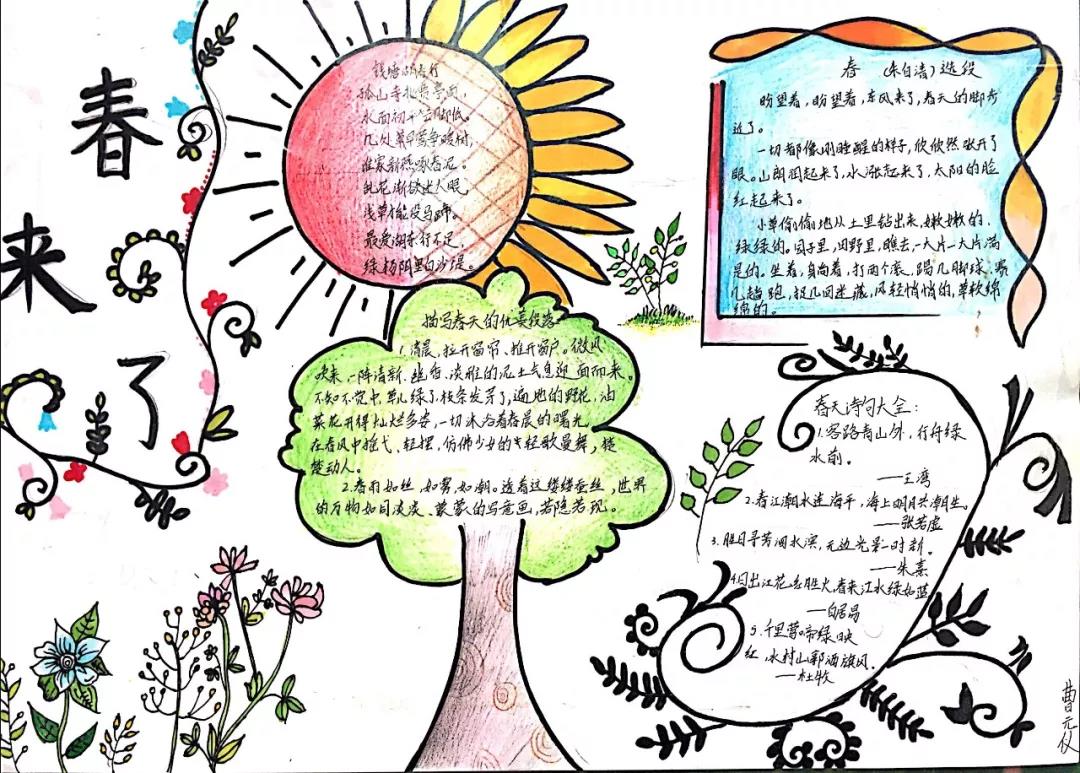 春来了
钱塘湖春行
孤山寺北贾亭西，
水面初平云脚低。
几处早莺争暖树，
谁家新燕啄春泥。
乱花渐欲迷人眼，
浅草才能没马蹄。
最爱湖东行不足，
绿杨阴里白沙堤。
春（朱自清）选段
盼望着，盼望着，东风来了，春天的脚步
近了。
一切都像刚睡醒的样子，欣欣然张开了
眼。山朗润起来了，水涨起来了，太阳的脸
红起来了。
小草偷偷地从土里钻出来，嫩嫩的，
绿绿的。园子里，田野里，瞧去，一大片一大片满
是的。坐着，躺着，打两个滚，踢几脚球，赛
几趟跑，捉几回迷藏，风轻悄悄的，草软绵
绵的。
描写春天的优美段落
1.清晨，拉开窗帘、推开窗户。微风
吹来，一阵清新、幽香、淡雅的泥土气息迎面而来。
不知不觉中，草儿绿了，枝条发芽了，遍地的野花，油
菜花开得灿烂多姿，一切沐浴着春晨的曙光，
在春风中摇弋、轻摆，仿佛少女的轻歌曼舞，楚
楚动人。
2.春雨如丝，如雾，如潮。透着这缕缕蚕丝，世界
的万物如同淡淡、蒙蒙的写意画，若隐若现。
春天诗句大全：
1.客路青山外，行舟绿
水前。
——王湾
2.春江潮水连海平，海上明月共潮生。
——张若虚
3.胜日寻芳泗水滨，无边光景一时新。
——朱熹
4.日出江花红胜火，春来江水绿如蓝
——白居易
5.千里莺啼绿映
红，水村山郭酒旗风。
——杜牧
曹元仪